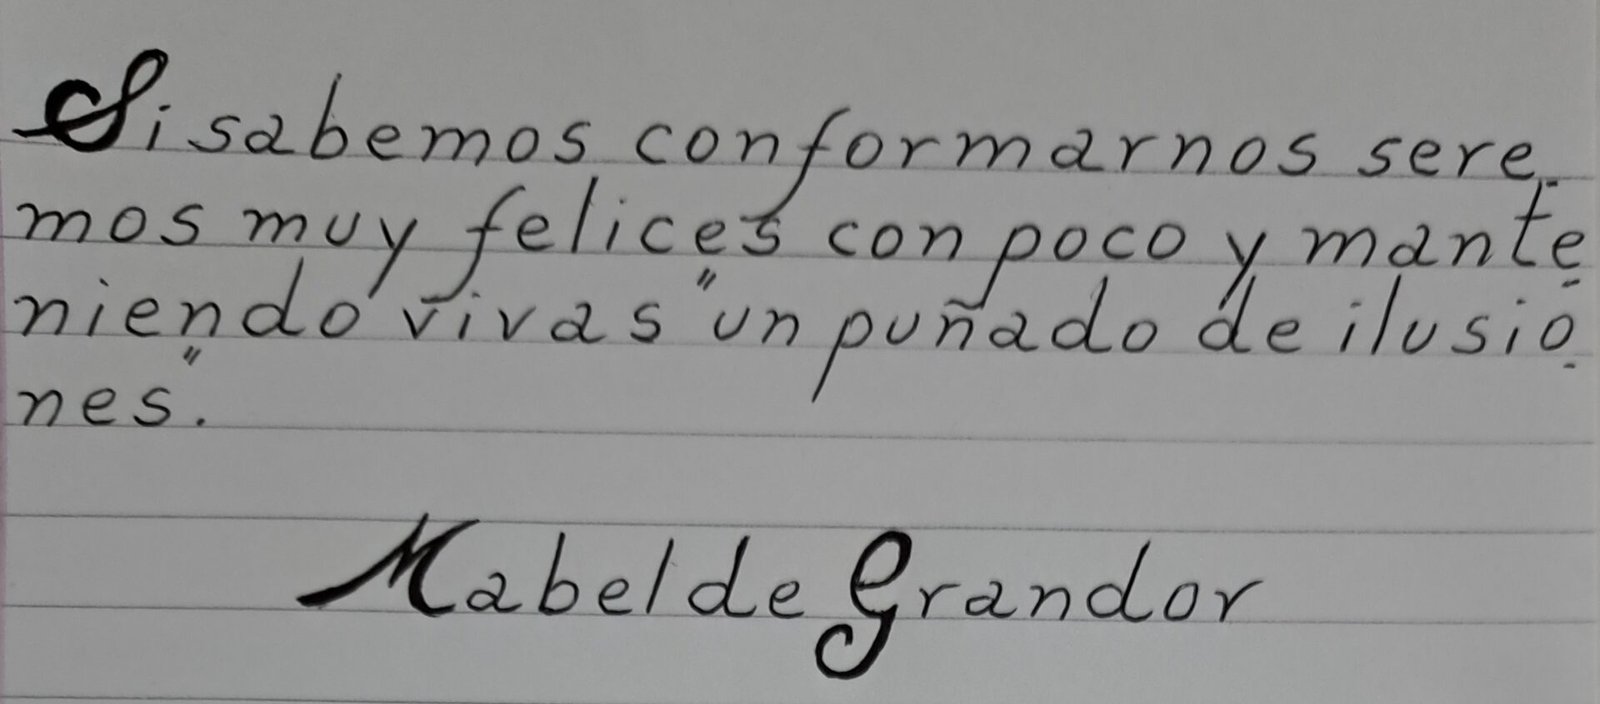 Si sabemos conformarnos sere-
mos muy felices con poco y mante-
niendo vivas "un puñado de ilusio-
nes".
Mabel de Grandor